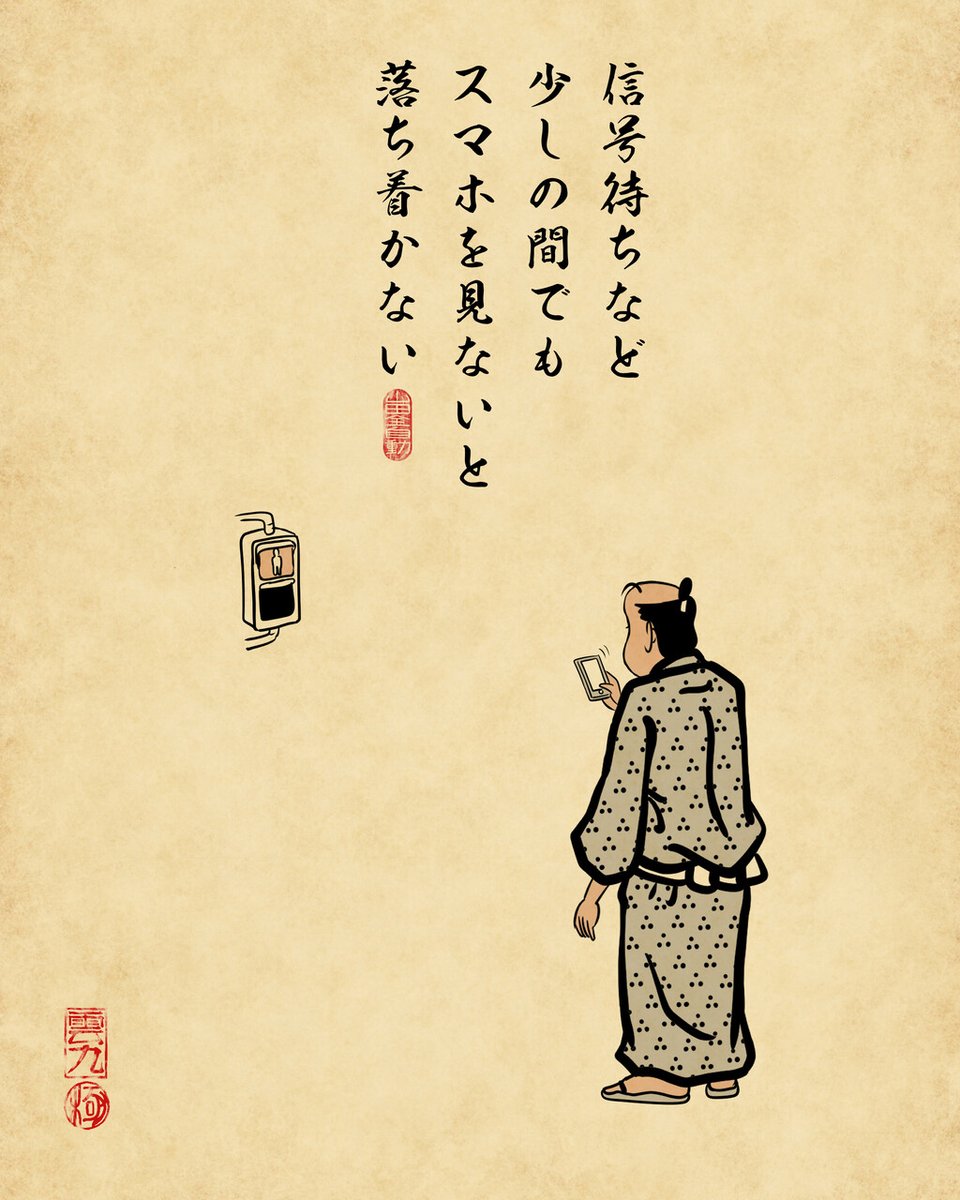 信号待ちなど
少しの間でも
スマホを見ないと
落ち着かない